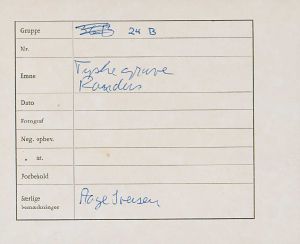 Gruppe 36B 24 B
Nr.
Emne Tyske grave
Randers
Dato
Fotograf
Neg. opbev.
„ nr.
Forbehold
Særlige
bemærkninger Aage Iversen